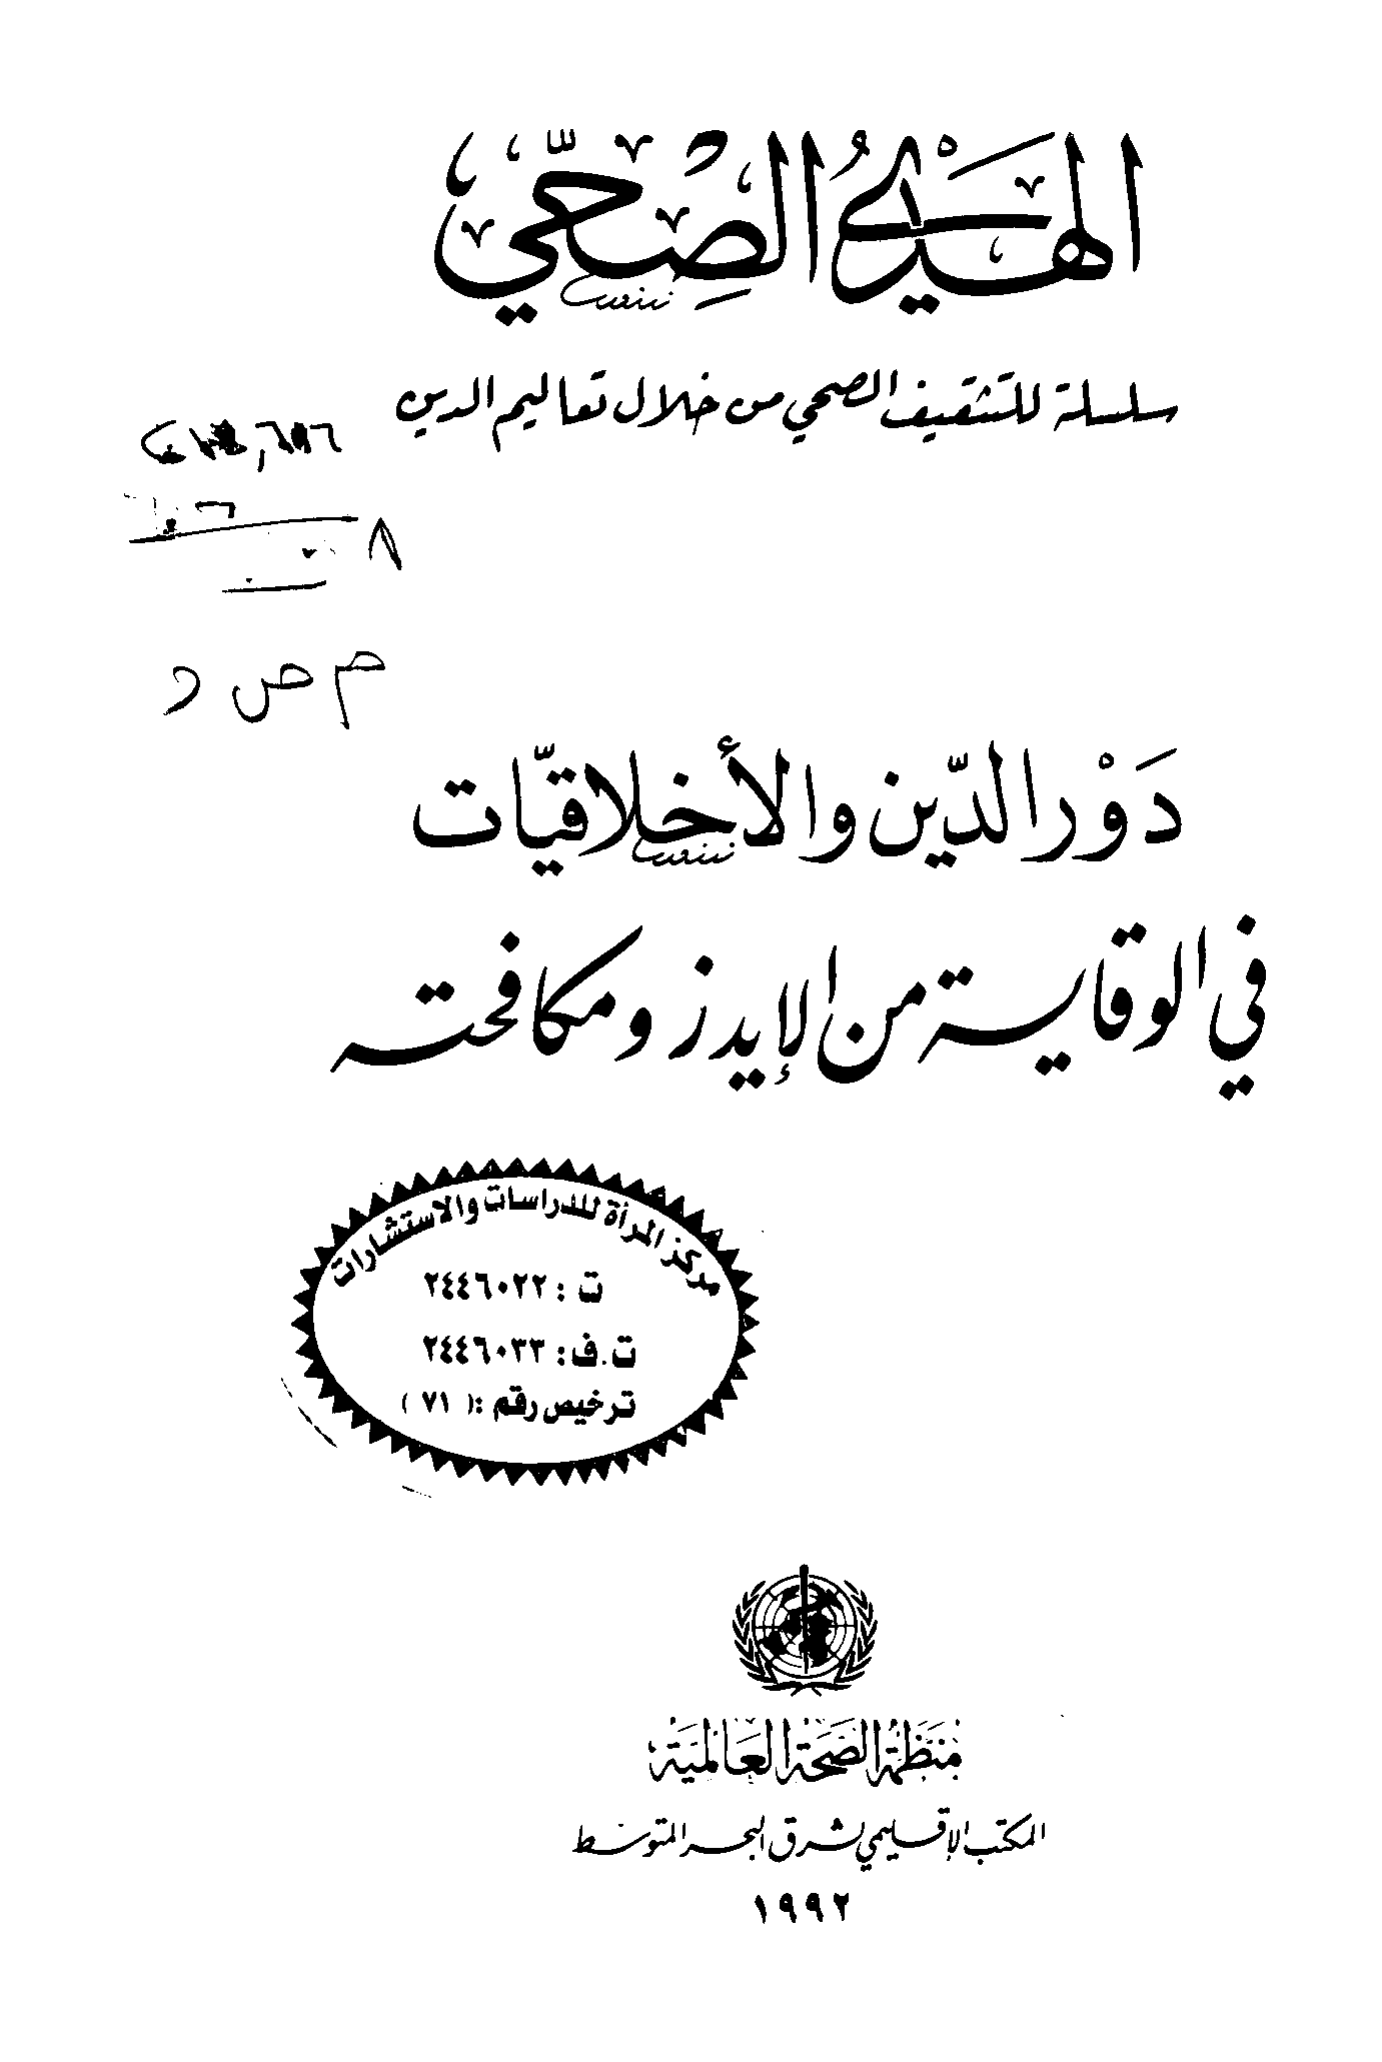 الهَدْيُ الصِّحّي
سلسلة للتثقيف الصحي من خلال تعاليم الدين
م ص د
دَوْر الدّين والأخلاقيّات
في الوقاية من الإيدز ومكافحته
مركز المرأة للدراسات والاستشارات
ت : ٢٤٤٦٠٢٢
ت.ف: ٢٤٤٦٠٣٣
ترخيص رقم :( ٧١ )
منظمة الصحة العالمية
المكتب الإقليمي لشرق البحر المتوسط
١٩٩٢